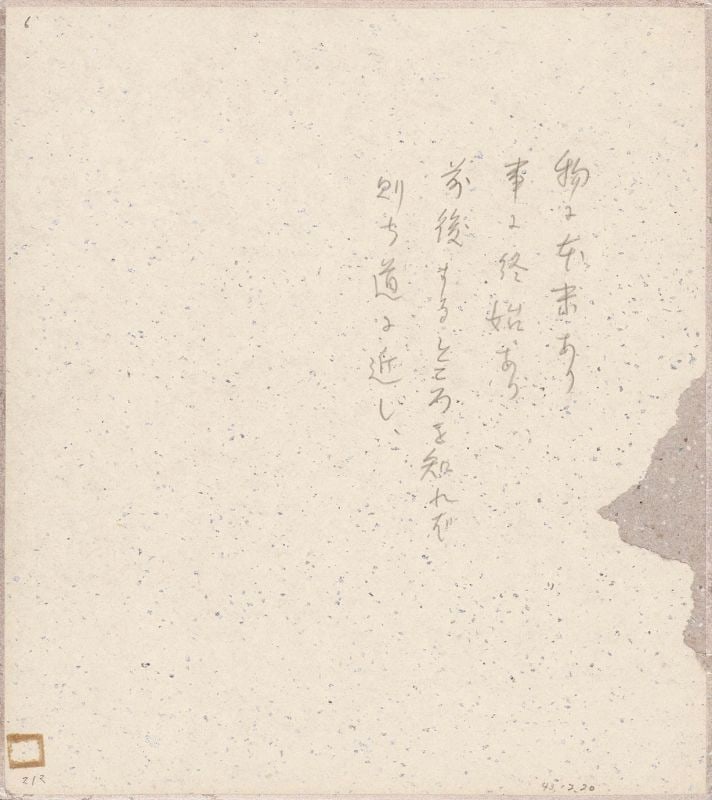 物に本末あり
事に終始あり
前後するところを知れば
則ち道に近し、
6
212
43.12.20